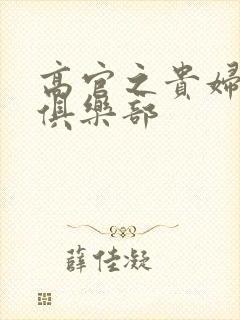 高官之貴婦
俱樂部
薛佳凝